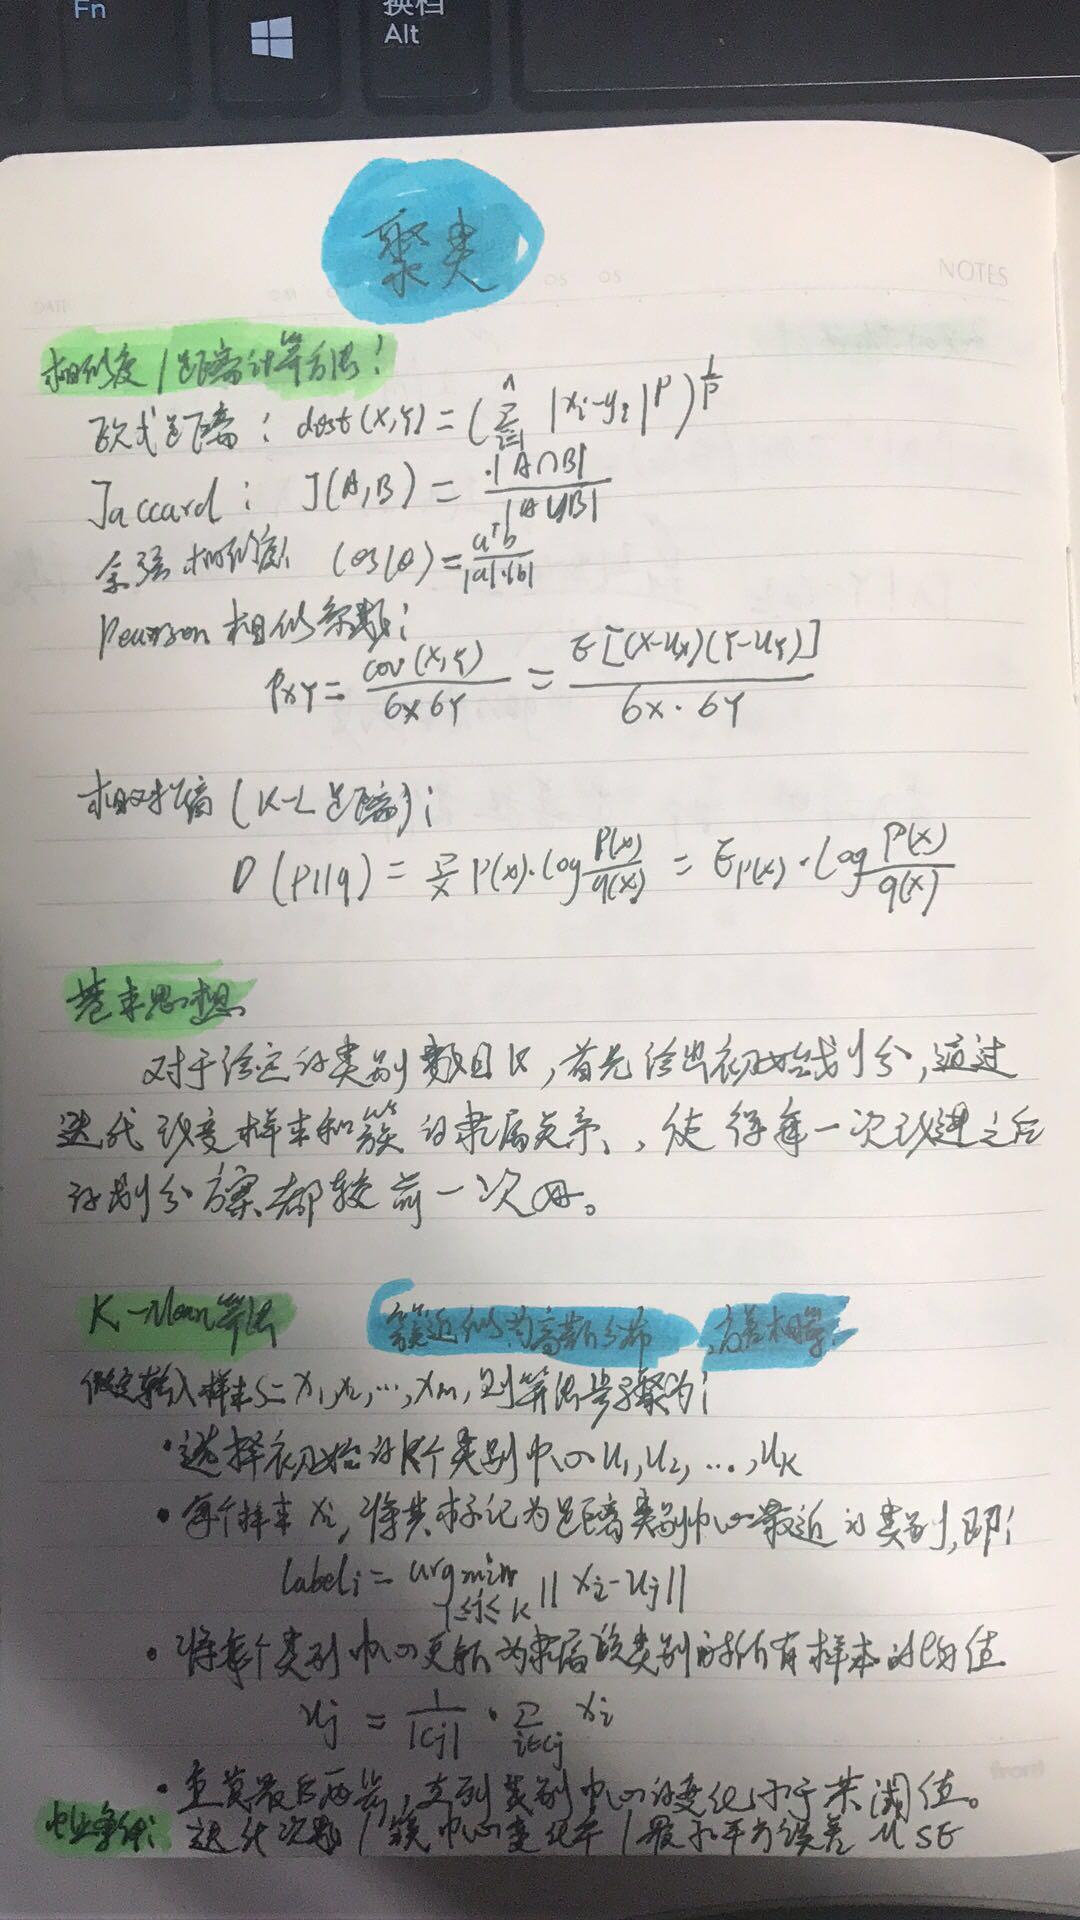 Fn
换档
Alt
NOTES
聚类
相似度/距离计算方法:
欧式距离: dist(X,Y) = (∑_{i=1}^{n} |x_i-y_i|^p)^{1/p}
Jaccard: J(A,B) = |A∩B| / |A∪B|
余弦相似度: cos(θ) = a^T b / |a|·|b|
Pearson 相似系数:
ρ_XY = cov(X,Y) / σX σY = E[(X-u_X)(Y-u_Y)] / σX·σY
相对熵 (K-L距离):
D(p||q) = ∑_x p(x)·log p(x)/q(x) = E_{p(x)}·log p(x)/q(x)
基本思想
对于给定的类别数目K,首先给出初始划分,通过
迭代改变样本和簇的隶属关系,使得每一次改进之后
的划分方案都较前一次好。
K-Mean算法 簇近似为高斯分布 方差相等
假定输入样本S= x_1,x_2,…,x_m,则算法步骤为:
·选择初始的K个类别中心u_1,u_2,…,u_K
·每个样本x_i,将其标记为距离类别中心最近的类别,即:
label_i = argmin_{1≤j≤K} ||x_i-u_j||
·将每个类别中心更新为隶属该类别的所有样本的均值
u_j = 1/|C_j| · ∑_{i∈C_j} x_i
·重复最后两步,直到类别中心的变化小于某阈值。
中止条件: 迭代次数/簇中心变化率/最小平方误差MSE
front